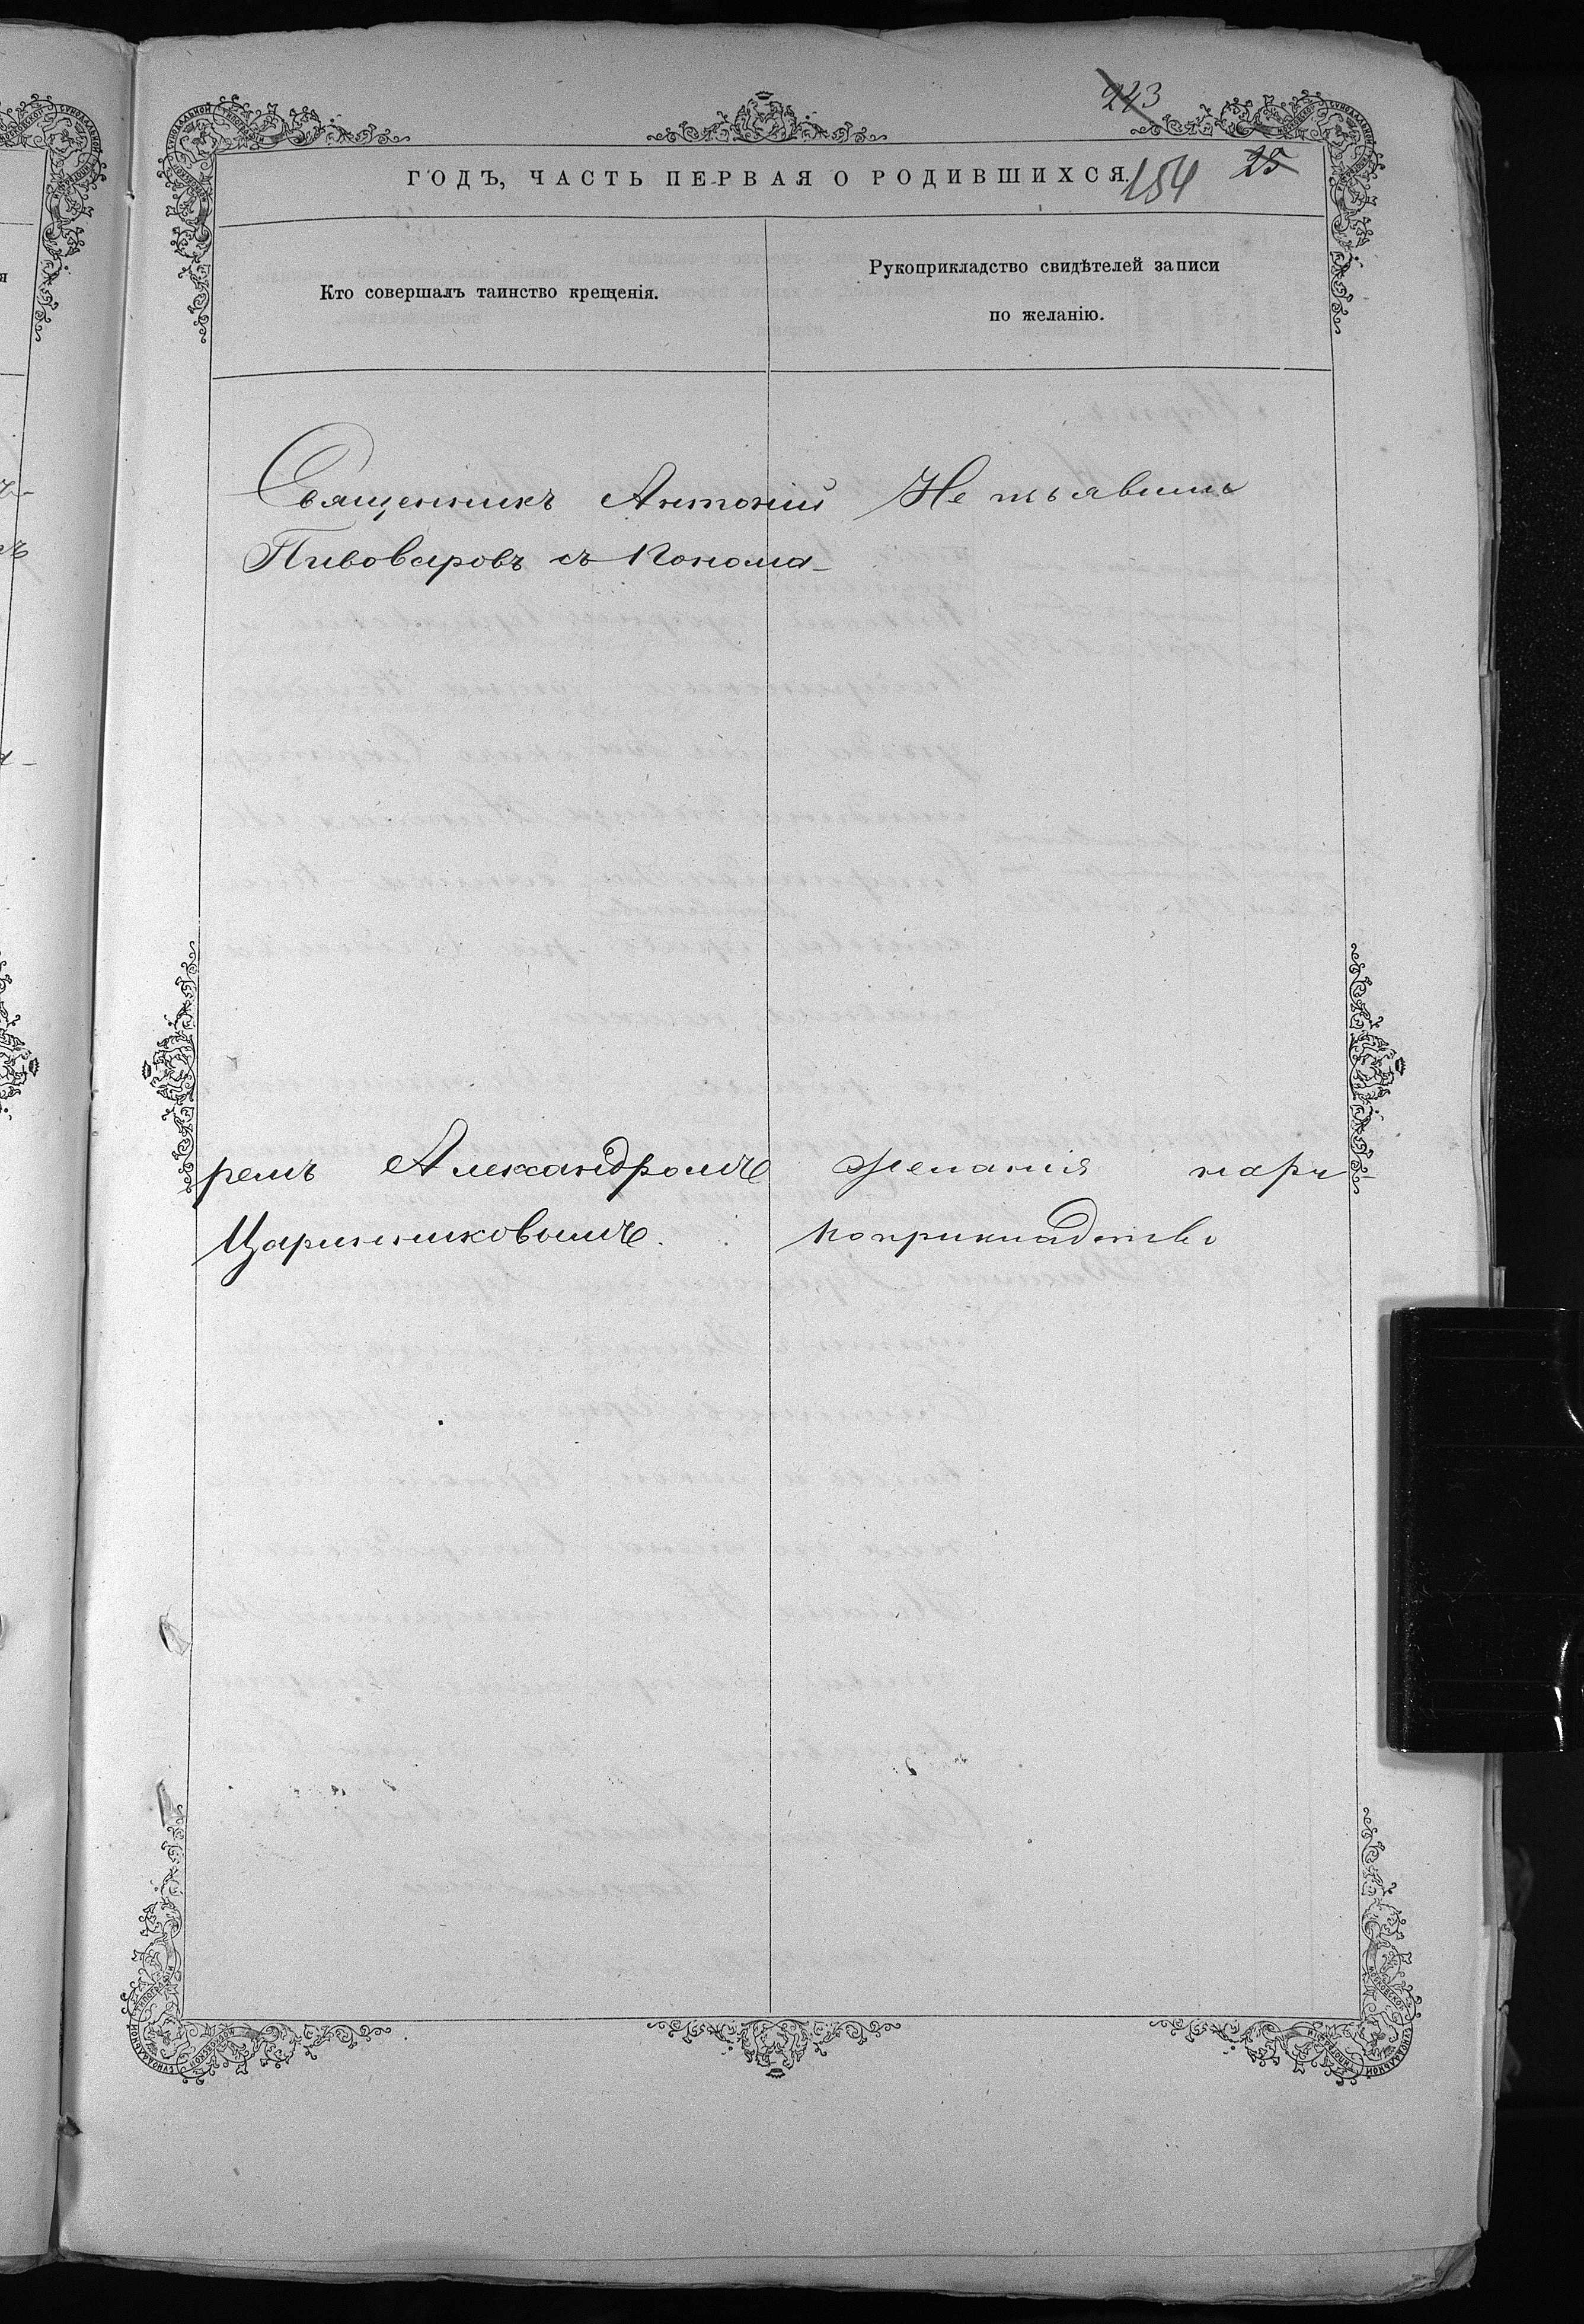 223
ГОДЪ, ЧАСТЬ ПЕРВАЯ О РОДИВШИХСЯ.
154
25
Кто совершалъ таинство крещенія.
Рукоприкладство свидѣтелей записи
по желанію.
Священникъ Антоній
Пивоваровъ съ понома-
ремъ Александромъ
Царинниковымъ.
Не изъявили
желанія на
коприкладство